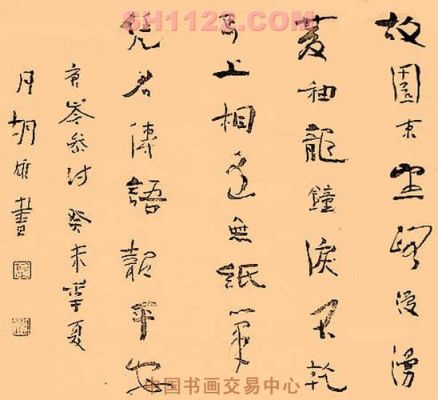 SH1122.COM
故園東望路漫漫
雙袖龍鐘淚不乾
馬上相逢無紙筆
凭君傳語報平安
唐岑参诗癸未夏
月胡雄書
中国书画交易中心